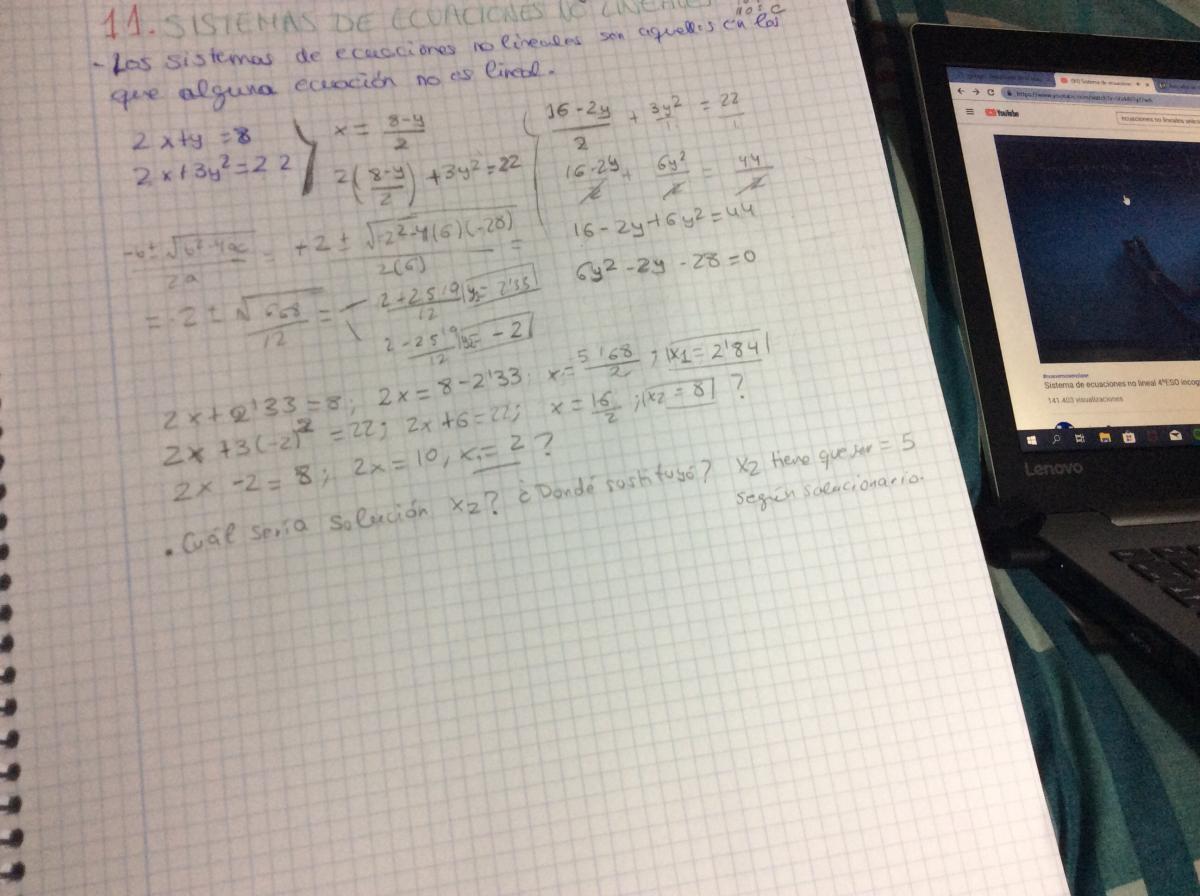 11. SISTEMAS DE ECUACIONES NO LINEALES
- Los sistemas de ecuaciones no lineales son aquellos en los
que alguna ecuación no es lineal.
2x+y=8
2x+3y²=22
x = 8-y/2
2(8-y/2)+3y²=22
16-2y/2 + 3y²/1 = 22/1
16-2y/2 + 6y²/2 = 44/2
16-2y+6y²=44
6y²-2y-28=0
-b±√b²-4ac/2a = +2±√-2²-4(6)(-28)/2(6) =
= 2±√668/12 =
2+25'9/12 y₂=2'33
2-25'9/12 = -2
2x+2'33=8; 2x=8-2'33; x=5'68/2; x1=2'84
2x+3(-2)²=22; 2x+6=22; x=16/2; x2=8 ?
2x-2=8; 2x=10, x₁=2 ?
• Cuál sería solución x2? ¿Dondé sustituyó? x2 tiene que ser = 5
según solucionario.
YouTube
Sistema de ecuaciones no lineal 4ºESO incog
141.403 visualizaciones
Lenovo